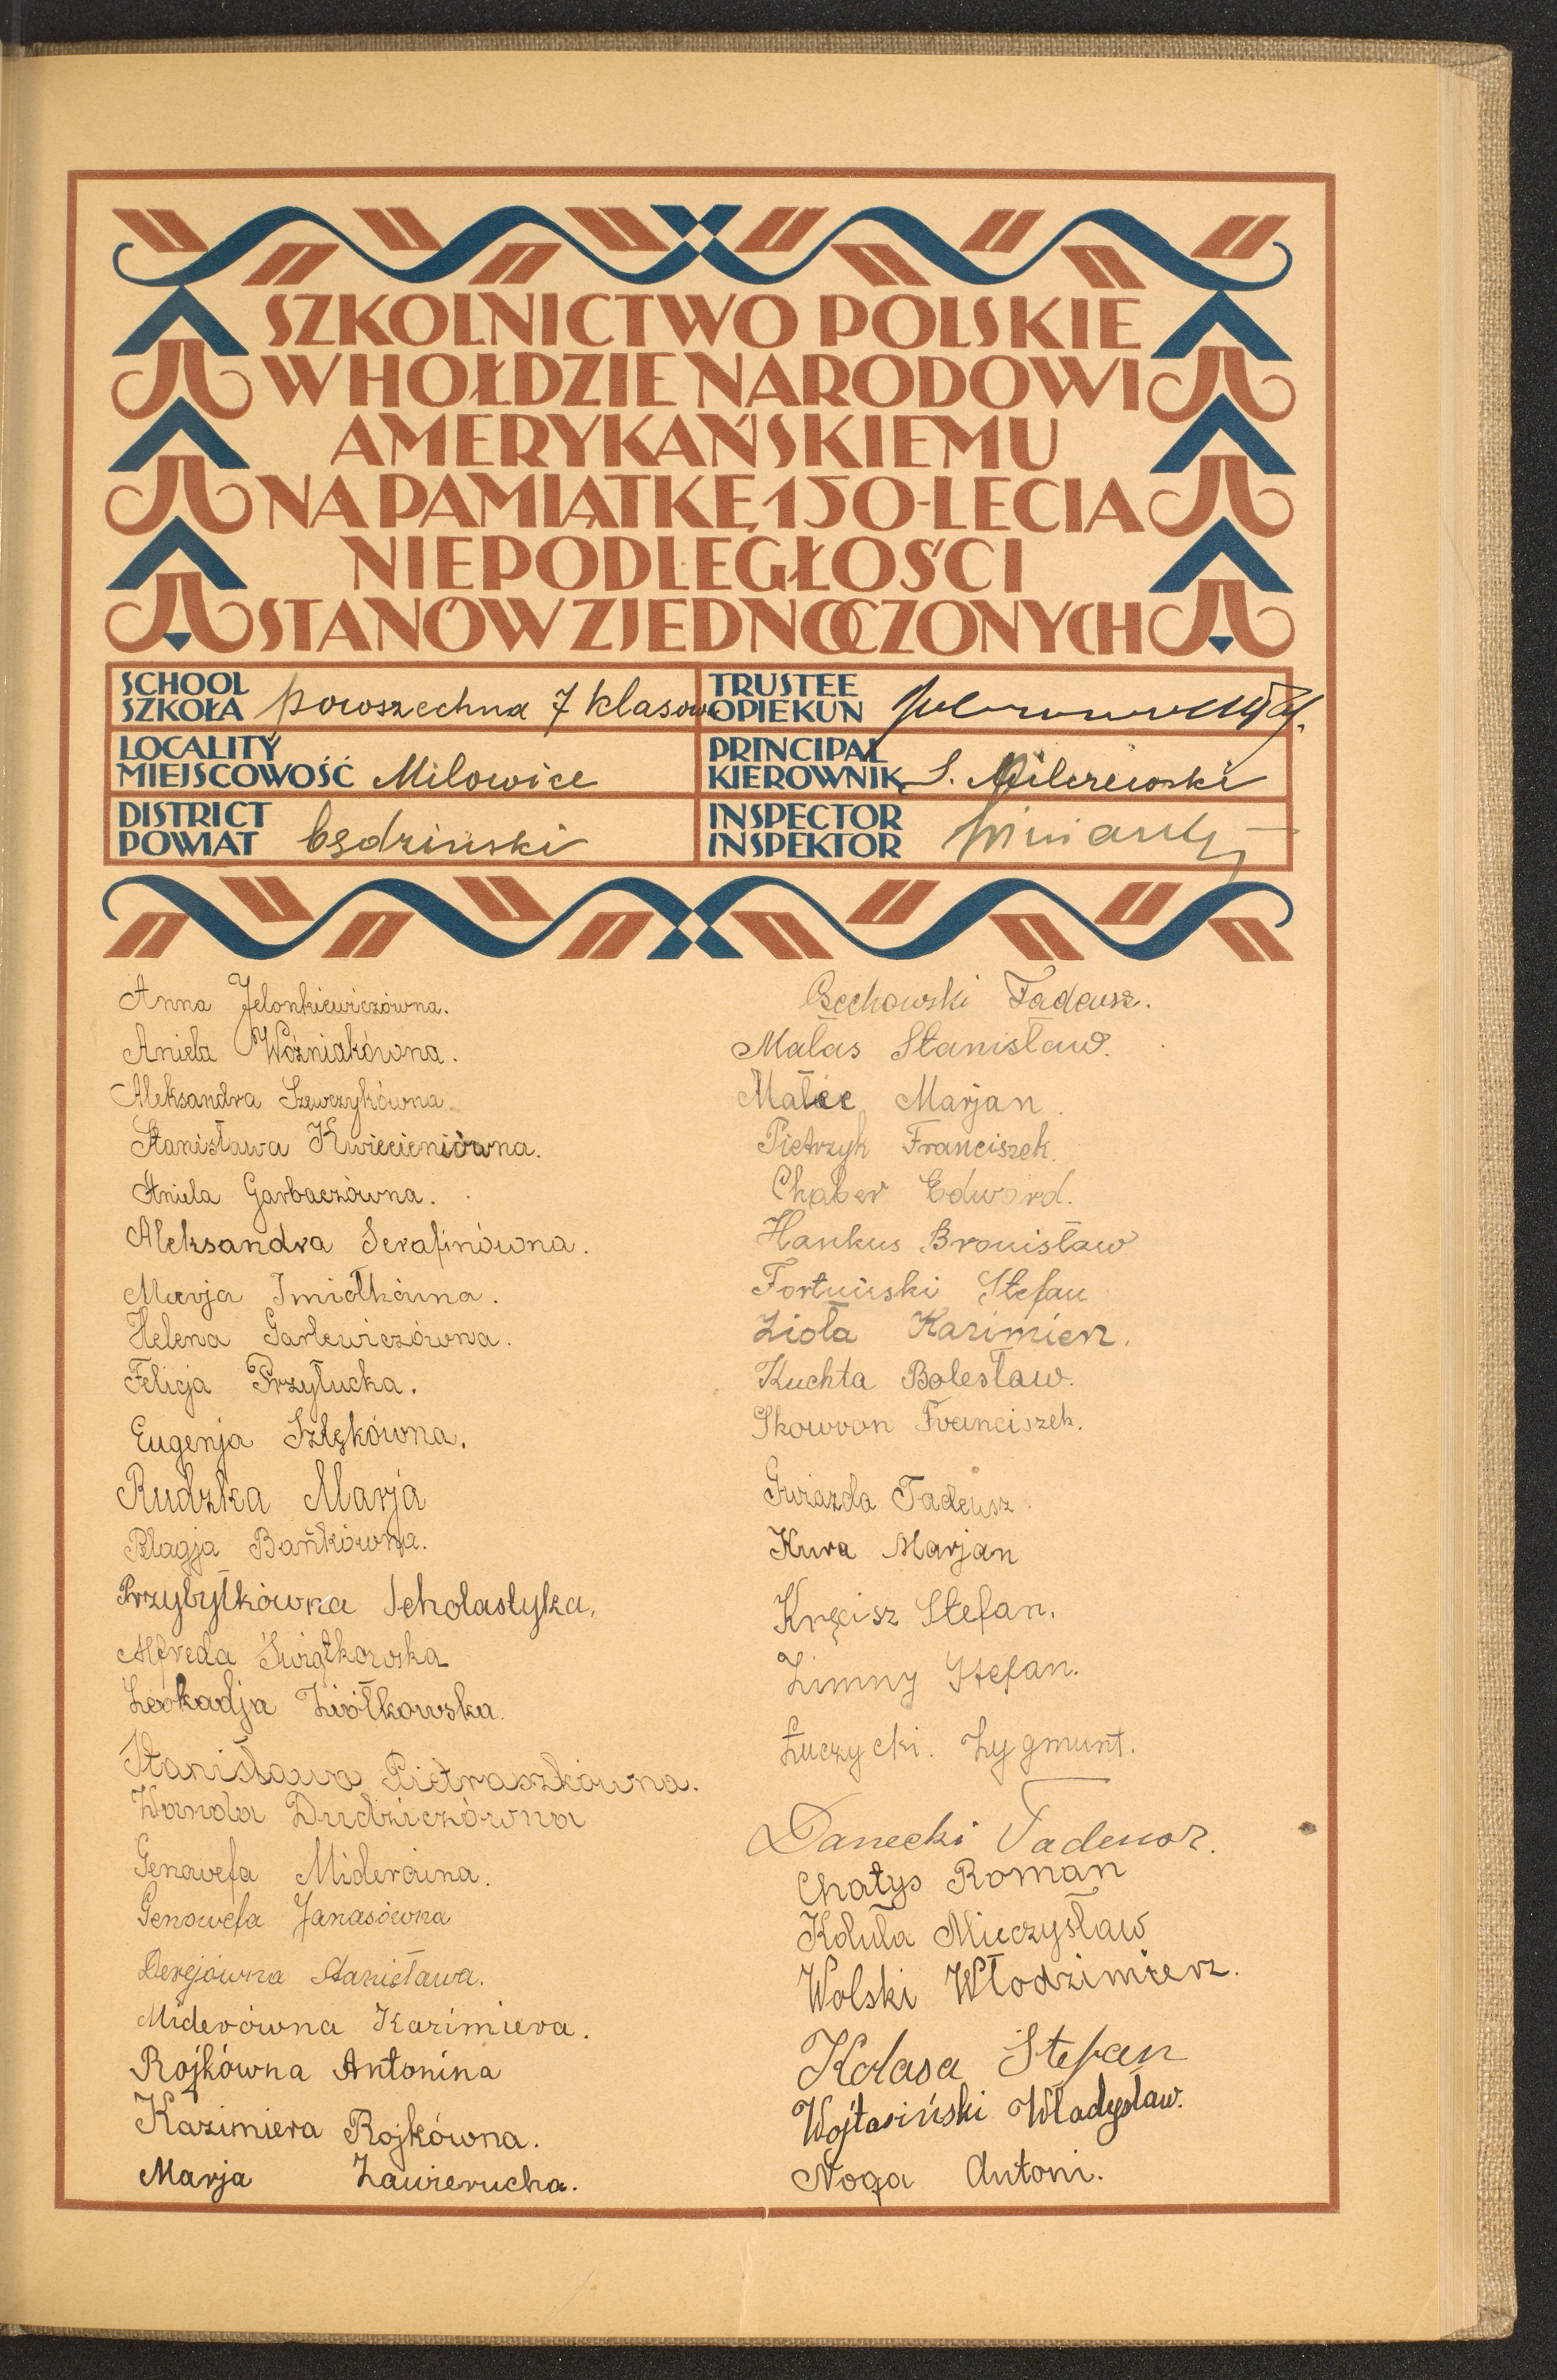 SZKOLNICTWO POLSKIE
W HOŁDZIE NARODOWI
AMERYKAŃSKIEMU
NA PAMIĄTKĘ 150-LECIA
NIEPODLEGŁOŚCI
STANÓW ZJEDNOCZONYCH
SCHOOL
SZKOŁA powszechna 7 klasowa
LOCALITY
MIEJSCOWOŚĆ Milowice
DISTRICT
POWIAT będziński
TRUSTEE
OPIEKUN
PRINCIPAL
KIEROWNIK S. Milczewski
INSPECTOR
INSPEKTOR
Anna Jelonkiewiczówna.
Aniela Woźniakówna.
Aleksandra Szewczykówna.
Stanisława Kwiecieniówna.
Aniela Garbaczówna.
Aleksandra Serafinówna.
Marja Imiołkówna.
Helena Garlewiczówna.
Felicja Przyłucka.
Eugenja Szlękówna.
Rudzka Marja
Pelagja Bańkówna.
Przybyłkówna Scholastyka,
Alfreda Świątkowska
Leokadja Ziółkowska.
Stanisława Pietraszkówna.
Wanda Dudziczówna
Genowefa Miderówna.
Genowefa Janasówna
Derejówna Stanisława.
Miderówna Kazimiera.
Rojkówna Antonina
Kazimiera Rojkówna.
Marja Zawierucha.
Tadeusz.
Malas Stanisław.
Marjan.
Pietrzyk Franciszek.
Chaber Edward.
Hankus Bronisław
Fortuński Stefan
Zioła Kazimierz.
Kuchta Bolesław.
Skowron Franciszek.
Gwiazda Tadeusz.
Kura Marjan
Kręcisz Stefan.
Zimny Stefan.
Łuczycki. Zygmunt.
Danecki Tadeusz.
Chatys Roman
Koluła Mieczysław
Wolski Włodzimierz.
Kolasa Stefan
Wojtasiński Władysław.
Noga Antoni.